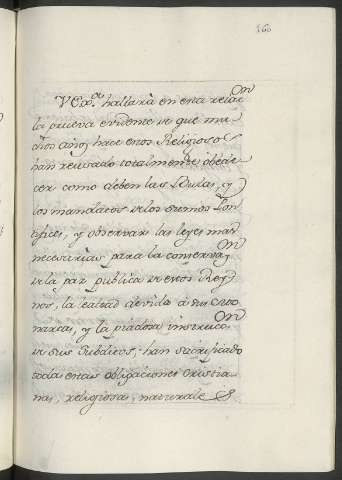 160
V Ex.ª hallara en esta relac.on
la prueva evidente de que mu-
chos años hace estos Religiosos
han reusado totalmente obede
cer como deben las Bulas, y
los mandatos de los sumos Pon
tifices, y observar las leyes mas
necesarias para la conservaz.on
de la paz publica de estos Rey
nos, la lealtad devida a sus Mo
narcas, y la piadosa instrucc.on
de sus Subditos, han sacrificado
todas estas obligaciones Cristia
nas, religiosas, naturales